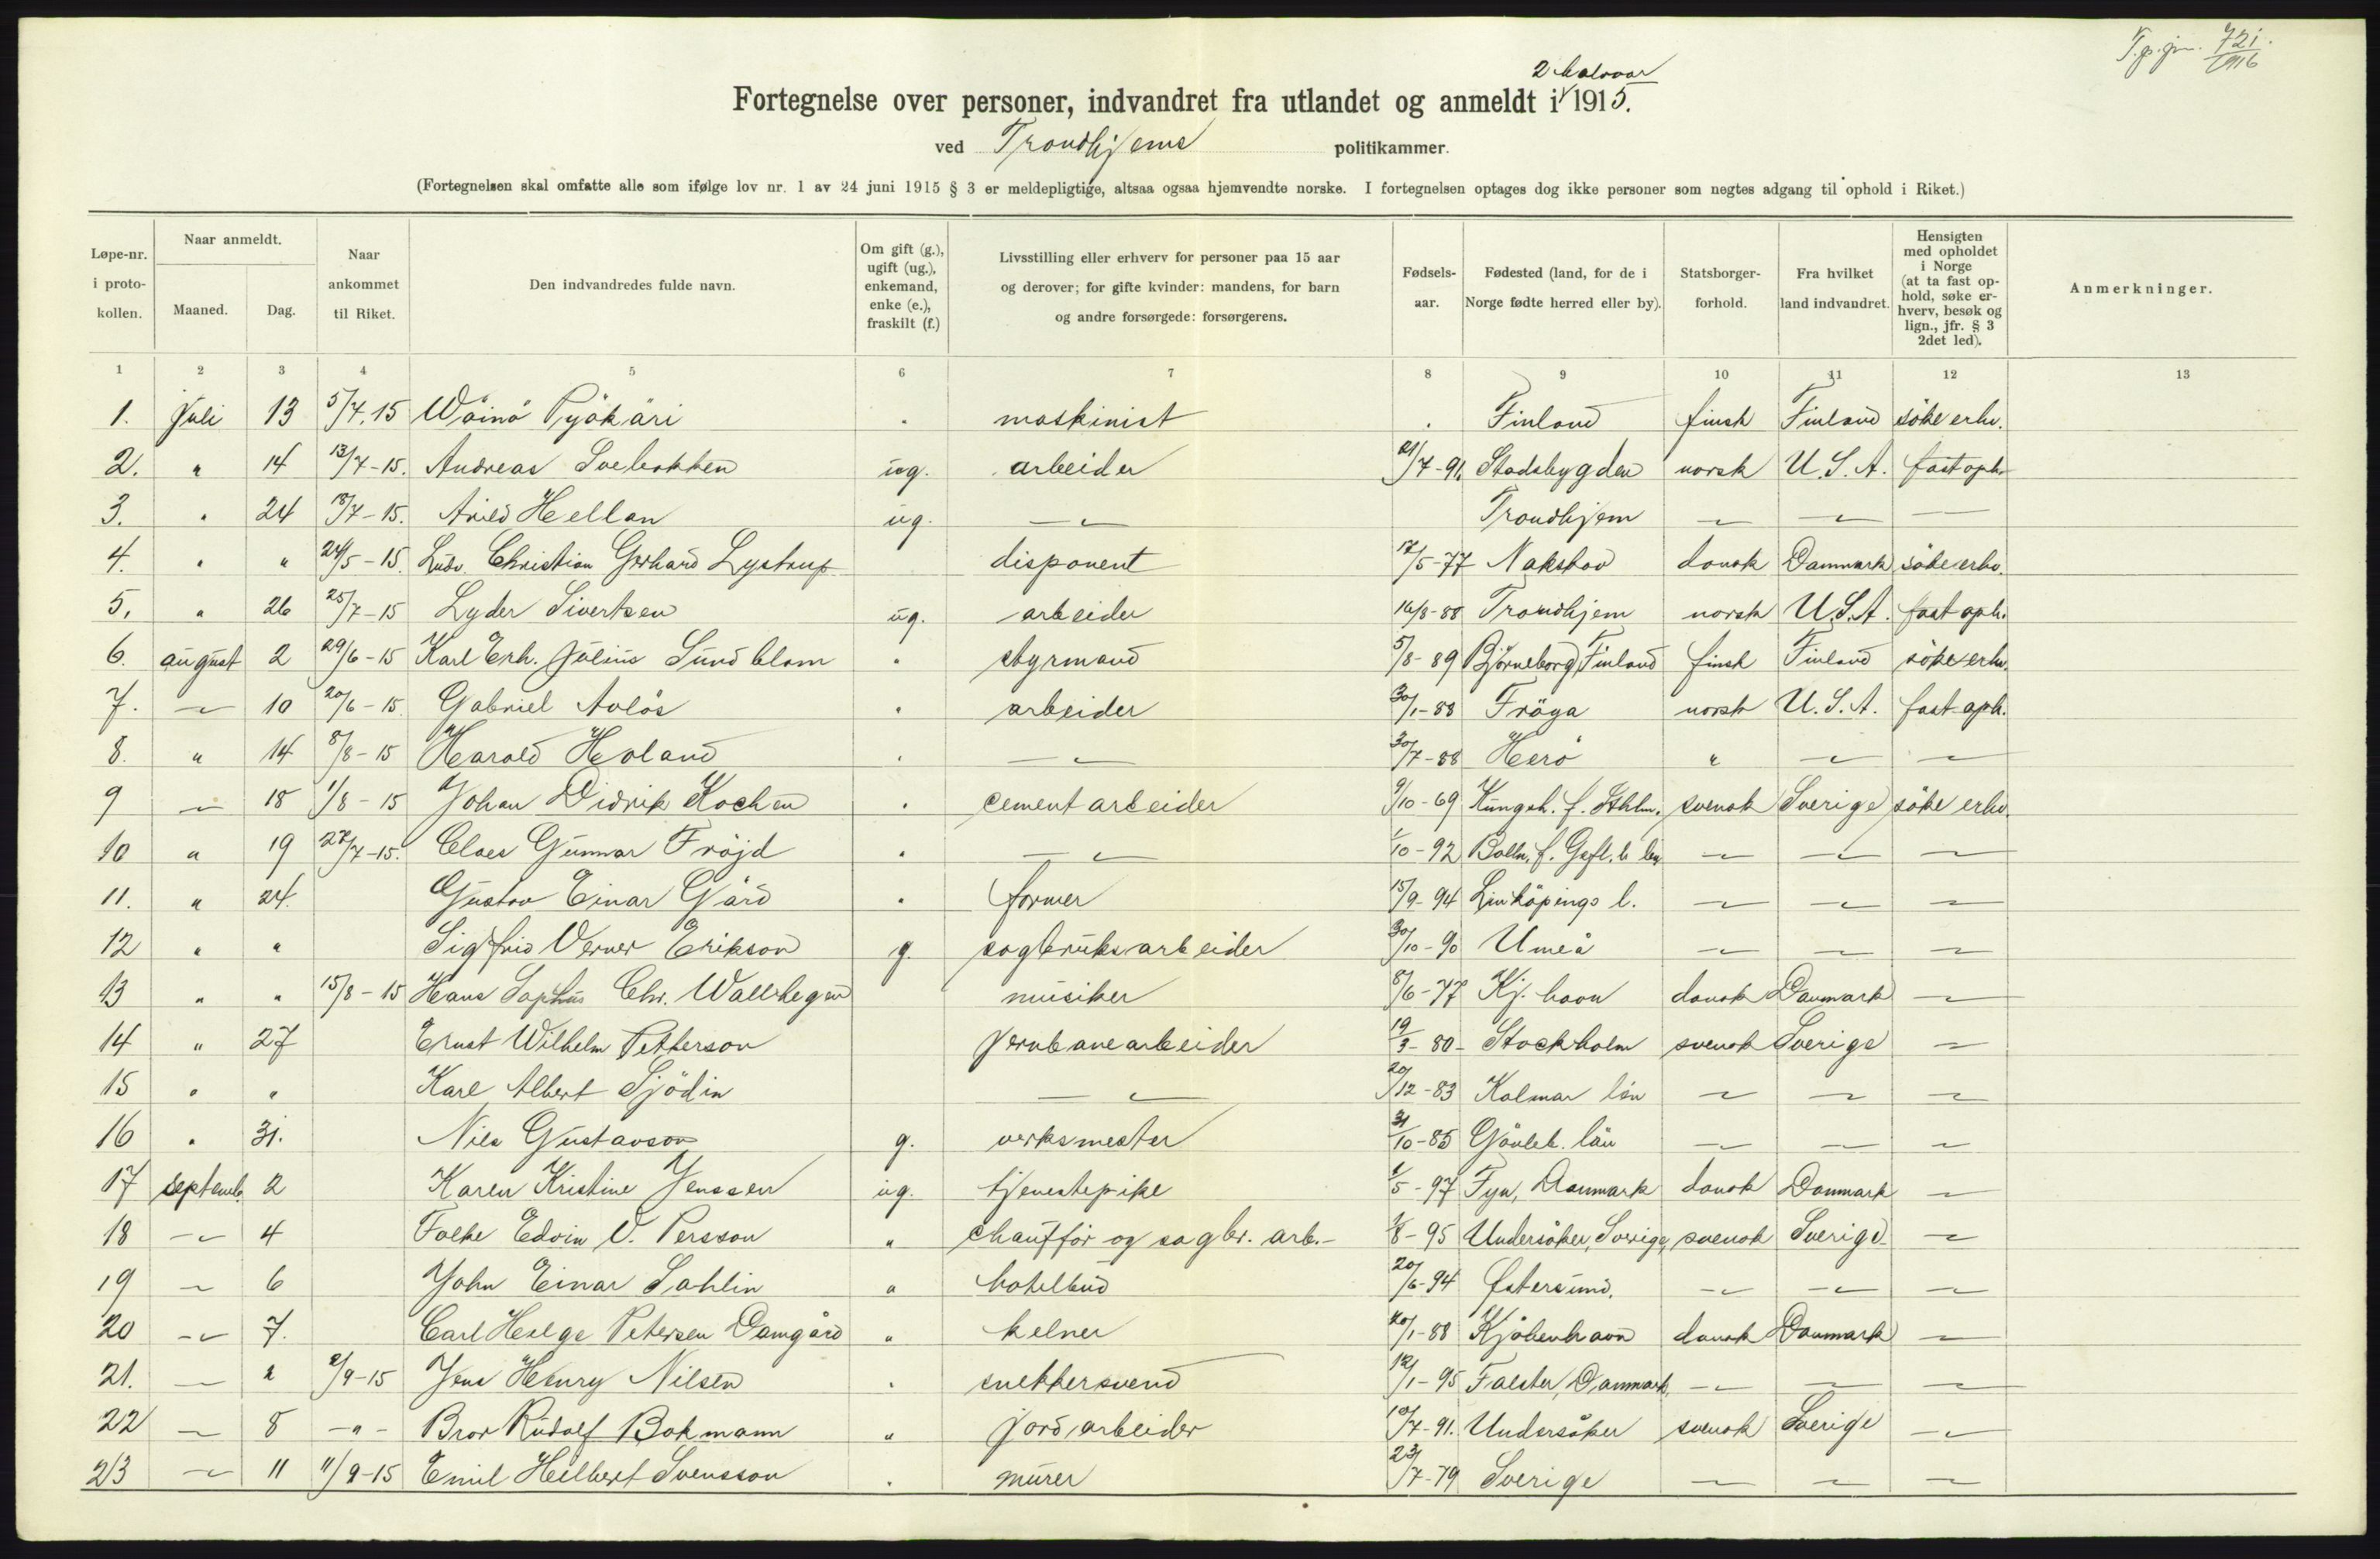 T.p.jn. 721/1916
2 halvaar
Fortegnelse over personer, indvandret fra utlandet og anmeldt i 1915.
ved Trondhjems politikammer.
(Fortegnelsen skal omfatte alle som ifølge lov nr. 1 av 24 juni 1915 § 3 er meldepligtige, altsaa ogsaa hjemvendte norske. I fortegnelsen optages dog ikke personer som negtes adgang til ophold i Riket.)
Løpe-nr. i proto-kollen. Naar anmeldt. Maaned. Dag. Naar ankommet til Riket. Den indvandredes fulde navn. Om gift (g.), ugift (ug.), enkemand, enke (e.), fraskilt (f.) Livsstilling eller erhverv for personer paa 15 aar og derover; for gifte kvinder: mandens, for barn og andre forsørgede: forsørgerens. Fødsels-aar. Fødested (land, for de i Norge fødte herred eller by). Statsborger-forhold. Fra hvilket land indvandret. Hensigten med opholdet i Norge (at ta fast op-hold, søke er-hverv, besøk og lign., jfr. § 3 2det led). Anmerkninger.
1 2 3 4 5 6 7 8 9 10 11 12 13
1. Juli 13 5/7.15 Wäinö Pyökäri " maskinist . Finland finsk Finland söke erhv.
2. " 14 13/7-15. Andreas ug. arbeider 21/7-91. Stadsbygden norsk U.S.A. fast oph.
3. " 24 18/7-15. Arild Hellan ug. —"— Trondhjem —"— —"— —
4. " " 24/5-15. Ludv. Christian Gerhard Lystrup disponent 17/5-77 Nakskov dansk Danmark söke erhv.
5. " 26 25/7-15 Lyder Sivertsen ug. arbeider 16/8-88 Trondhjem norsk U.S.A. fast oph.
6. august 2 29/6-15 Karl Erh. Julius Sundblom " styrmand 5/8-89 Björneborg, Finland finsk Finland söke erhv.
7. —"— 10 20/6-15 Gabriel Avlös " arbeider 30/1-88 Fröya norsk U.S.A. fast oph.
8. " 14 8/8-15 Harald Hovland " —"— 30/7-88 Herö " —"— —"—
9 —"— 18 1/8-15 Johan Didrik Kochen " cementarbeider 9/10-69 Kungsh. f. Sthlm. svensk Sverige söke erhv.
10 " 19 27/7-15. Claes Gunnar Fröjd " —"— 1/10-92 Bolln. f. Gefl. b. län —"— —"— —"—
11. " 24. Gustav Einar Gård " former 15/9-94 Linköpings l. —"— —"— —"—
12 " " Sigfrid Verner Erikson g. sagbruksarbeider 30/10-90 Umeå —"— —"— —"—
13 " " 15/8-15 Hans Sophus Chr. Wallhegen musiker 8/6-77 Kj.havn dansk Danmark —"—
14 " 27 Ernst Wilhelm Petterson jernbanearbeider 19/3-80- Stockholm svensk Sverige —"—
15 " " Karl Albert Sjödin —"— 20/12-83 Kalmar län —"— —"— —"—
16 " 31. Nils Gustavson g. verksmester 31/10-85 Gävleb. län —"— —"— —"—
17 septemb. 2 Karen Kristine Jenssen ug. tjenestepike 1/5-97 Fyn, Danmark dansk Danmark —"—
18 —"— 4 Folke Edvin V. Persson " chaufför og sagbr. arb.- 1/8-95 Undersåker, Sverige, svensk Sverige —"—
19 —"— 6 John Einar Sahlin " hotelbud 20/6-94 Østersund. —"— —"— —"—
20 —"— 7. Carl Helge Petersen Damgård " kelner 20/1-88 Kjöbenhavn dansk Danmark —"—
21. —"— " 2/9-15 Jens Henry Nilsen " snekkersvend 12/1-95 Falster, Danmark, —"— —"— —"—
22 —"— 8 -"- Bror Rudolf Bokmann " jordarbeider 10/7-91. Undersåker svensk Sverige —"—
23 —"— 11 11/9-15 Emil Hilbert Svensson " murer 23/7-79 Sverige —"— —"— —"—